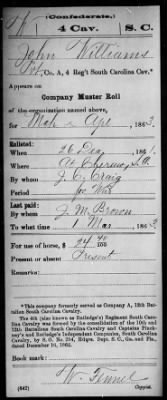 W (Confederate.)
4 Cav. S. C.
John Williams
Pvt, Co. A, 4 Reg't South Carolina Cav.*
Appears on
Company Muster Roll
of the organization named above,
for Mch & Apr, 1863
Enlisted:
When 26 Dec, 1861
Where At Cheraw, S.C.
By whom J. C. Craig
Period for War
Last paid:
By whom J. M. Brown
To what time 1 Mar, 1863
For use of horse, $ 24.40/100
Present or absent Present
Remarks:
*This company formerly served as Company A, 12th Battalion South Carolina Cavalry.
The 4th (also known as Rutledge's) Regiment South Carolina Cavalry was formed by the consolidation of the 10th and 12th Battalions South Carolina Cavalry and Captains Pinckney's and Rutledge's Independent Companies, South Carolina Cavalry, by S. O. No. 254, Hdqrs. Dept. S. C., Ga. and Fla., dated December 16, 1862.
Book mark:
W. Fennel
(642) Copyist.